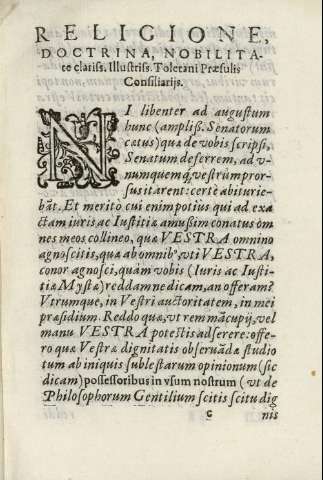 RELIGIONE,
DOCTRINA, NOBILITA-
te clariss. Illustriss. Toletani Præsulis
Consiliarijs.
NI libenter ad augustum
hunc (ampliß. Senatorum
cœtus) quæ de vobis scripsi,
Senatum deferrem, ad v-
numquemq; vestrũ pror-
sus itarent: certè abiturie-
bãt. Et meritò cui enim potius qui ad exa-
ctam iuris ac Iustitiæ amußim conatus om
nes meos collineo, quæ VESTRA omnino
agnoscitis, quæ ab omnibꝰ, vti VESTRA,
conor agnosci, quàm vobis (Iuris ac Iusti-
tiæ Mystæ) reddam ne dicam, an offeram?
Vtrumque, in Vestri auctoritatem, in mei
præsidium. Reddo quæ, vt rem mãcupij, vel
manu VESTRA potestis adserere: offe-
ro quæ Vestræ dignitatis obseruãdæ studio
tum ab iniquis sublestarum opinionum (sic
dicam) possessoribus in vsum nostrum (vt de
Philosophorum Gentilium scitis scitu dig
c nis